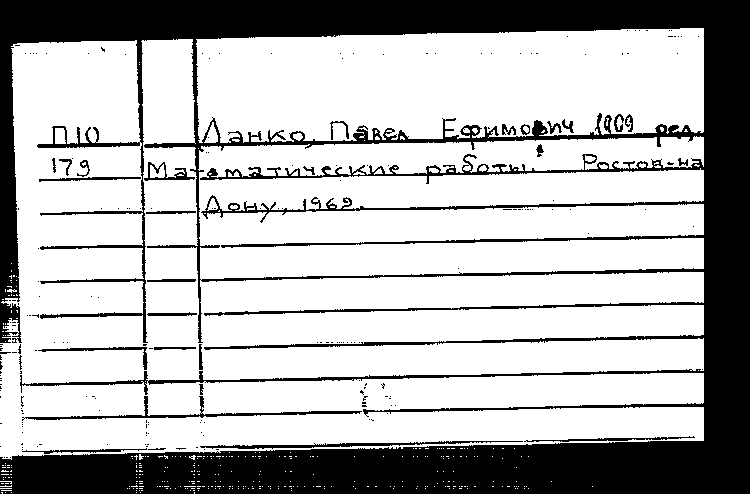 П10 Данко, Павел Ефимович 1909 ред.
179 Математические работы. Ростов-на
Дону, 1969.